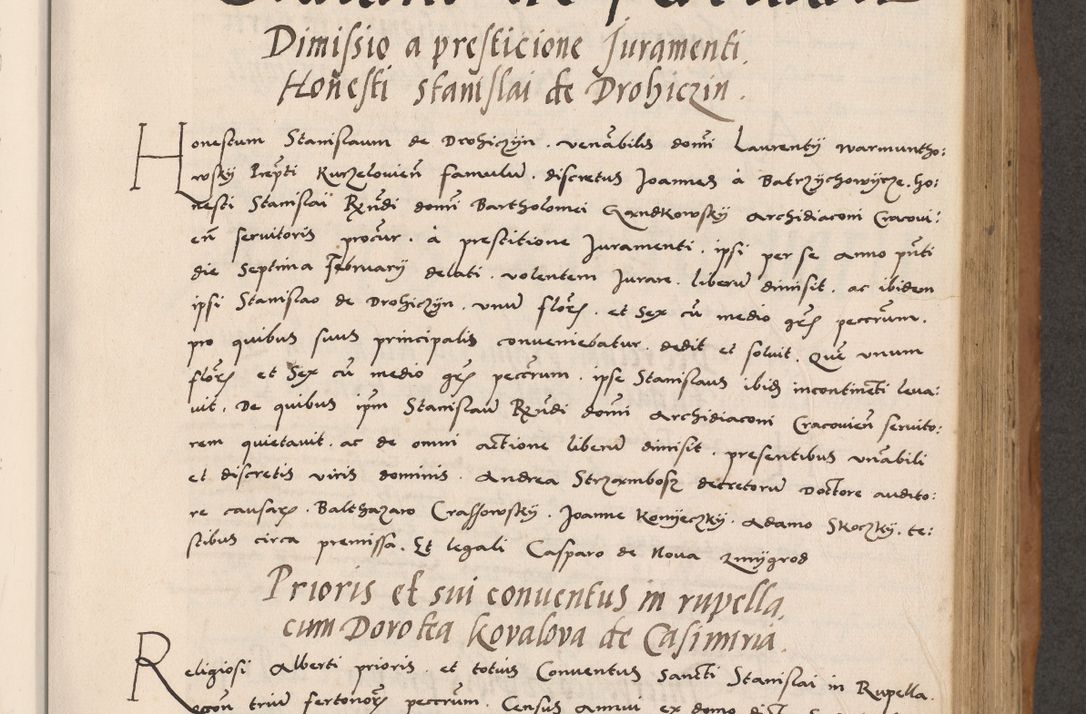 Dimissio a presticione Juramenti.
Honesti Stanislai de Drohiczin.
Honestum Stanislaum de Drohiczyn. venabilis domi Laurentÿ warmuntho:
wskÿ Prepti Kurzelovien famulum. discretus Joannes à Batrzÿchowÿcze. ho:
nesti Stanislaï Rxndi domi Bartholomei Gandkowskÿ Archidiaconi Cracovi:
en servitoris procur. à prestitione Juramenti. ipsi per se anno pnti
die Septima Februarÿ delati. volentem Jurare. liberum dimisit. ac ibidem
ipsi Stanislao de Drohiczÿn. unum flore. et Sex cu medio gre peccrum.
pro quibus suus principalis conveniebatur. dedit et soluit. Que unum
flore et Sex cu medio gre peccrum. ipse Stanislaus ibid incontineti leva:
vit. De quibus ipm Stanislaum Rxndi domi Archidiaconi Cracovien servito:
rem quietavit. ac de omni actione liberum dimisit. presentibus vnabili
et discretis viris dominis. Andrea Strzambosz decretorum Doctore audito:
re causare. Balthazaro Crassowskÿ. Joanne Konÿeczkÿ. Adamo Skoczkÿ. te:
stibus circa premissa. Et legali Casparo de Nova zmÿgrod
Prioris et sui conventus in rupella.
cum Dorotea Kovalova de Casimiria.
Religiosi Alberti prioris. et totius Conventus Sancti Stanislai in Rupella.
trium fertonore peccrum. Census Annui ex domo